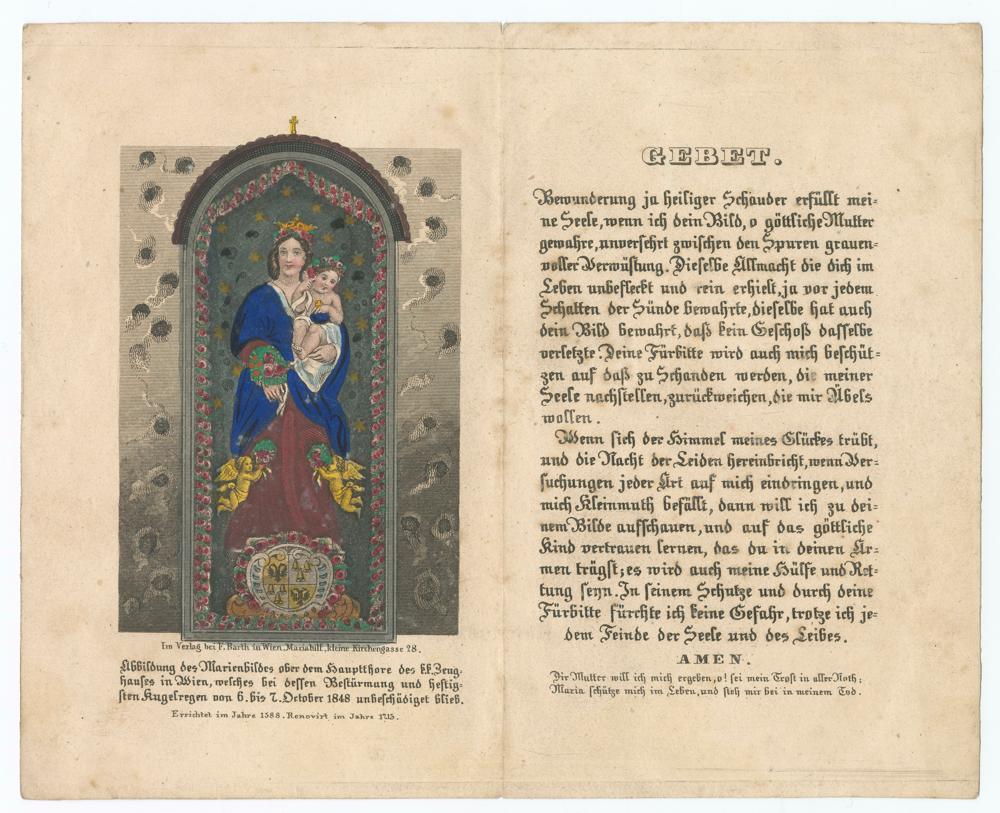 Im Verlag bei F. Barth in Wien, Mariahilf, kleine Kirchengasse 28.
Abbildung des Marienbildes ober dem Hauptthore des k.k. Zeug=
hauses in Wien, welches bei dessen Bestürmung und heftig=
sten Kugelregen von 6. bis 7. October 1848 unbeschädiget blieb.
Errichtet im Jahre 1588. Renovirt im Jahre 1713.
GEBET.
Bewunderung ja heiliger Schauder erfüllt mei=
ne Seele, wenn ich dein Bild, o göttliche Mutter
gewahre, unversehrt zwischen den Spuren grauen=
voller Verwüstung. Dieselbe Allmacht die dich im
Leben unbefleckt und rein erhielt, ja vor jedem
Schatten der Sünde bewahrte, dieselbe hat auch
dein Bild bewahrt, daß kein Geschoß dasselbe
verletzte. Deine Fürbitte wird auch mich beschüt=
zen auf daß zu Schanden werden, die meiner
Seele nachstellen, zurückweichen, die mir Übels
wollen.
Wenn sich der Himmel meines Glückes trübt,
und die Nacht der Leiden hereinbricht, wenn Ver=
suchungen jeder Art auf mich eindringen, und
mich Kleinmuth befällt, dann will ich zu dei=
nem Bilde aufschauen, und auf das göttliche
Kind vertrauen lernen, das du in deinen Ar=
men trägst; es wird auch meine Hülfe und Ret=
tung seyn. In seinem Schutze und durch deine
Fürbitte fürchte ich keine Gefahr, trotze ich je=
dem Feinde der Seele und des Leibes.
AMEN.
Dir Mutter will ich mich ergeben, o! sei mein Trost in aller Noth;
Maria schütze mich im Leben, und steh mir bei in meinem Tod.